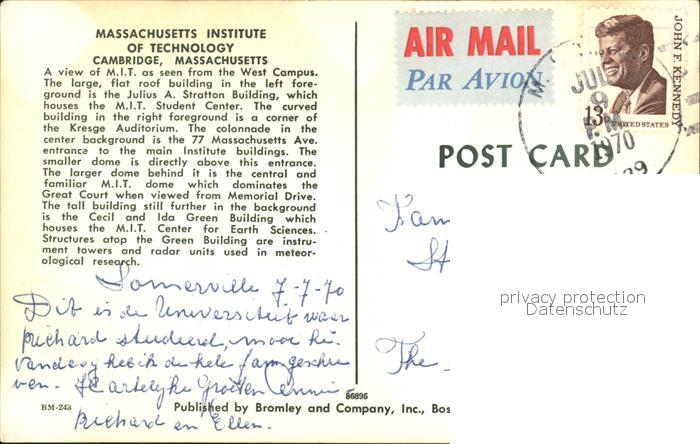 MASSACHUSETTS INSTITUTE
OF TECHNOLOGY
CAMBRIDGE, MASSACHUSETTS
A view of M.I.T. as seen from the West Campus.
The large, flat roof building in the left fore-
ground is the Julius A. Stratton Building, which
houses the M.I.T. Student Center. The curved
building in the right foreground is a corner of
the Kresge Auditorium. The colonnade in the
center background is the 77 Massachusetts Ave.
entrance to the main Institute buildings. The
smaller dome is directly above this entrance.
The larger dome behind it is the central and
familiar M.I.T. dome which dominates the
Great Court when viewed from Memorial Drive.
The tall building still further in the background
is the Cecil and Ida Green Building which
houses the M.I.T. Center for Earth Sciences.
Structures atop the Green Building are instru-
ment towers and radar units used in meteor-
ological research.
Somerville 7-7-70
Dit is de Universiteit waar
Richard studeerd, mooi hé.
Vandaag heb ik de hele fam geschre
ven. Hartelijke Groeten Annie
Richard en Ellen.
BM-243
86895
Published by Bromley and Company, Inc., Bos
AIR MAIL
PAR AVION
JOHN F. KENNEDY
13c
UNITED STATES
JUL
9
P.M.
1970
POST CARD
Fam
St
The
privacy protection
Datenschutz